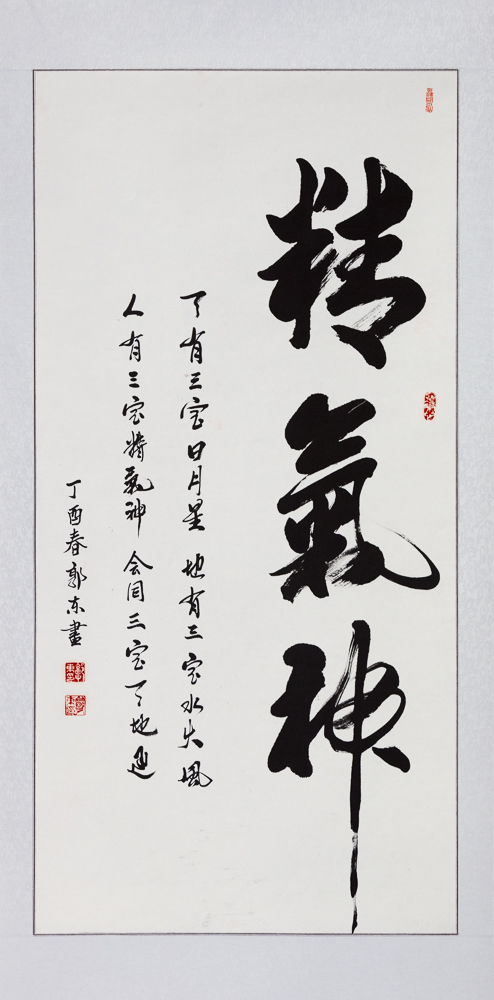 精氣神
天有三宝日月星 地有三宝水火風
人有三宝精氣神 会用三宝天地通
丁酉春郭东書